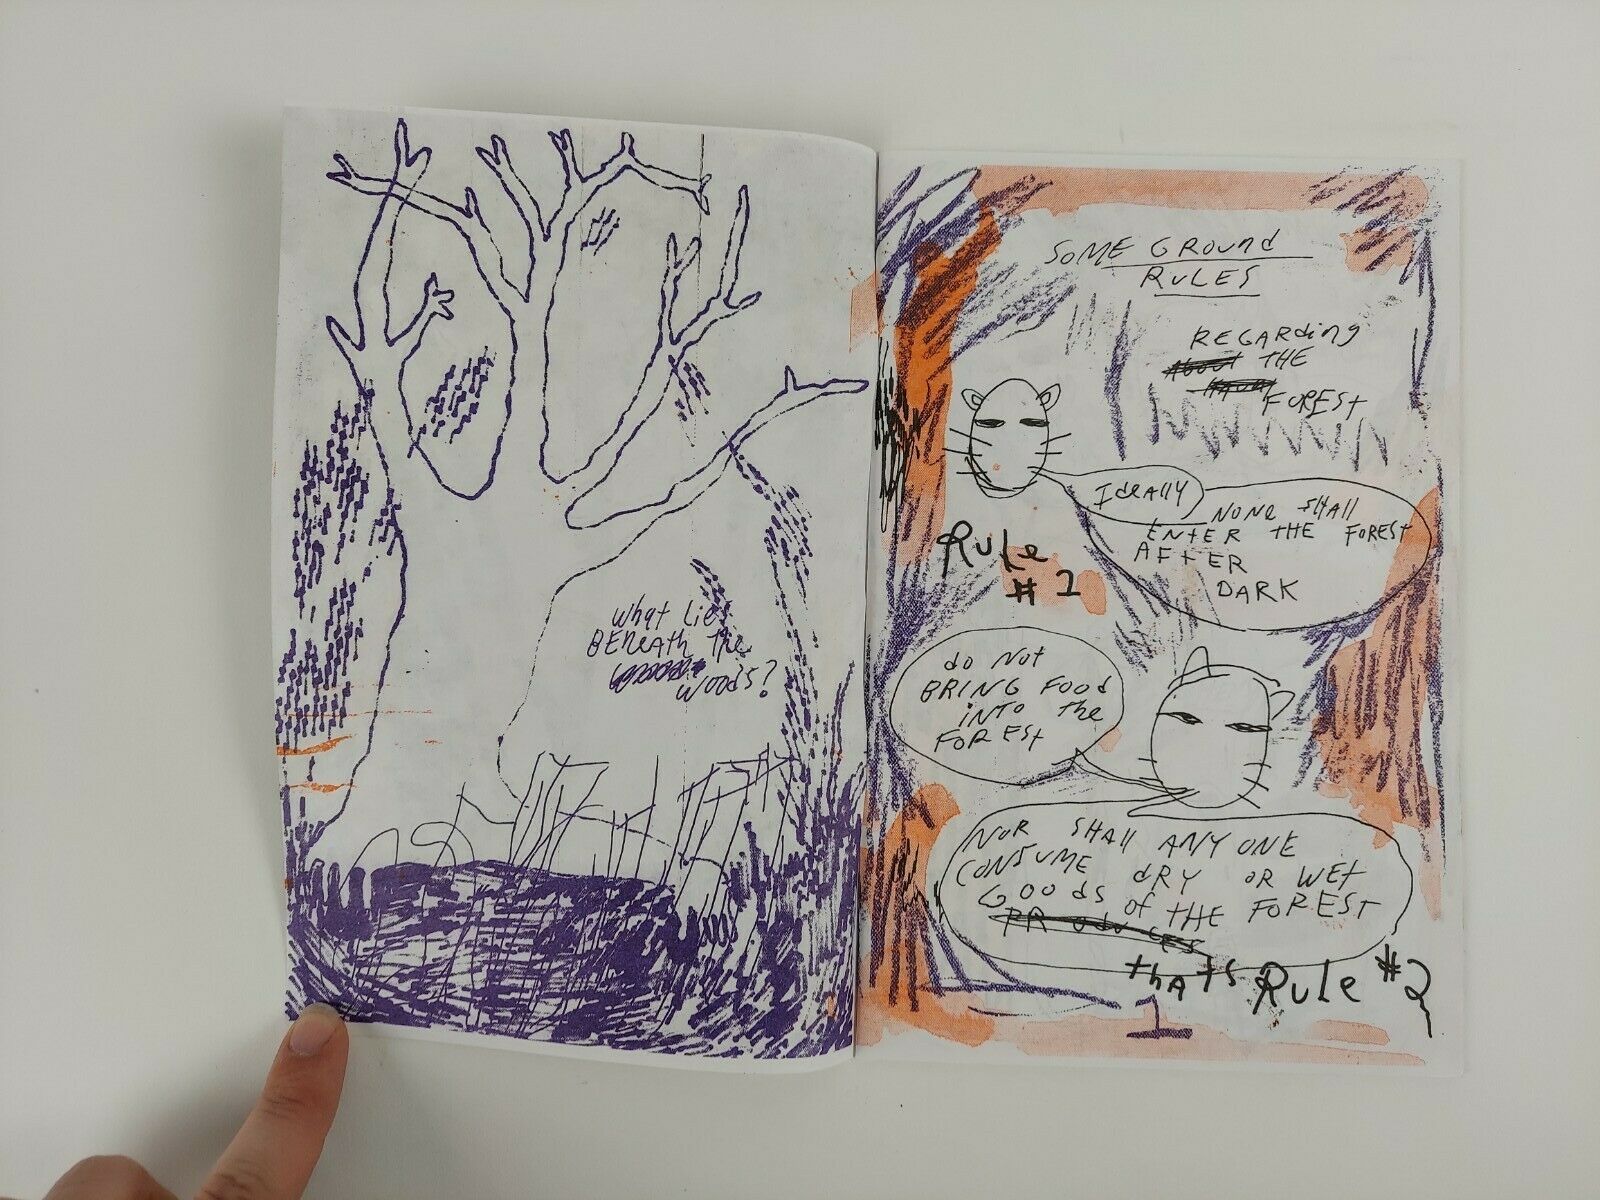 what lies
BENEATH the
woods?
SOME GROUNd
RULES
REGARding
About THE
FORESt
IdeAlly
NONE SHAll
ENTER THE FOREST
AFTER
DARK
RULe
# 1
do Not
BRING FOOd
iNTO the
FORESt
NOR SHAll ANYONE
CONSUME dRY OR WEt
GOOdS of THE FOREST
PRODUCES
thAtS RULe #2
1